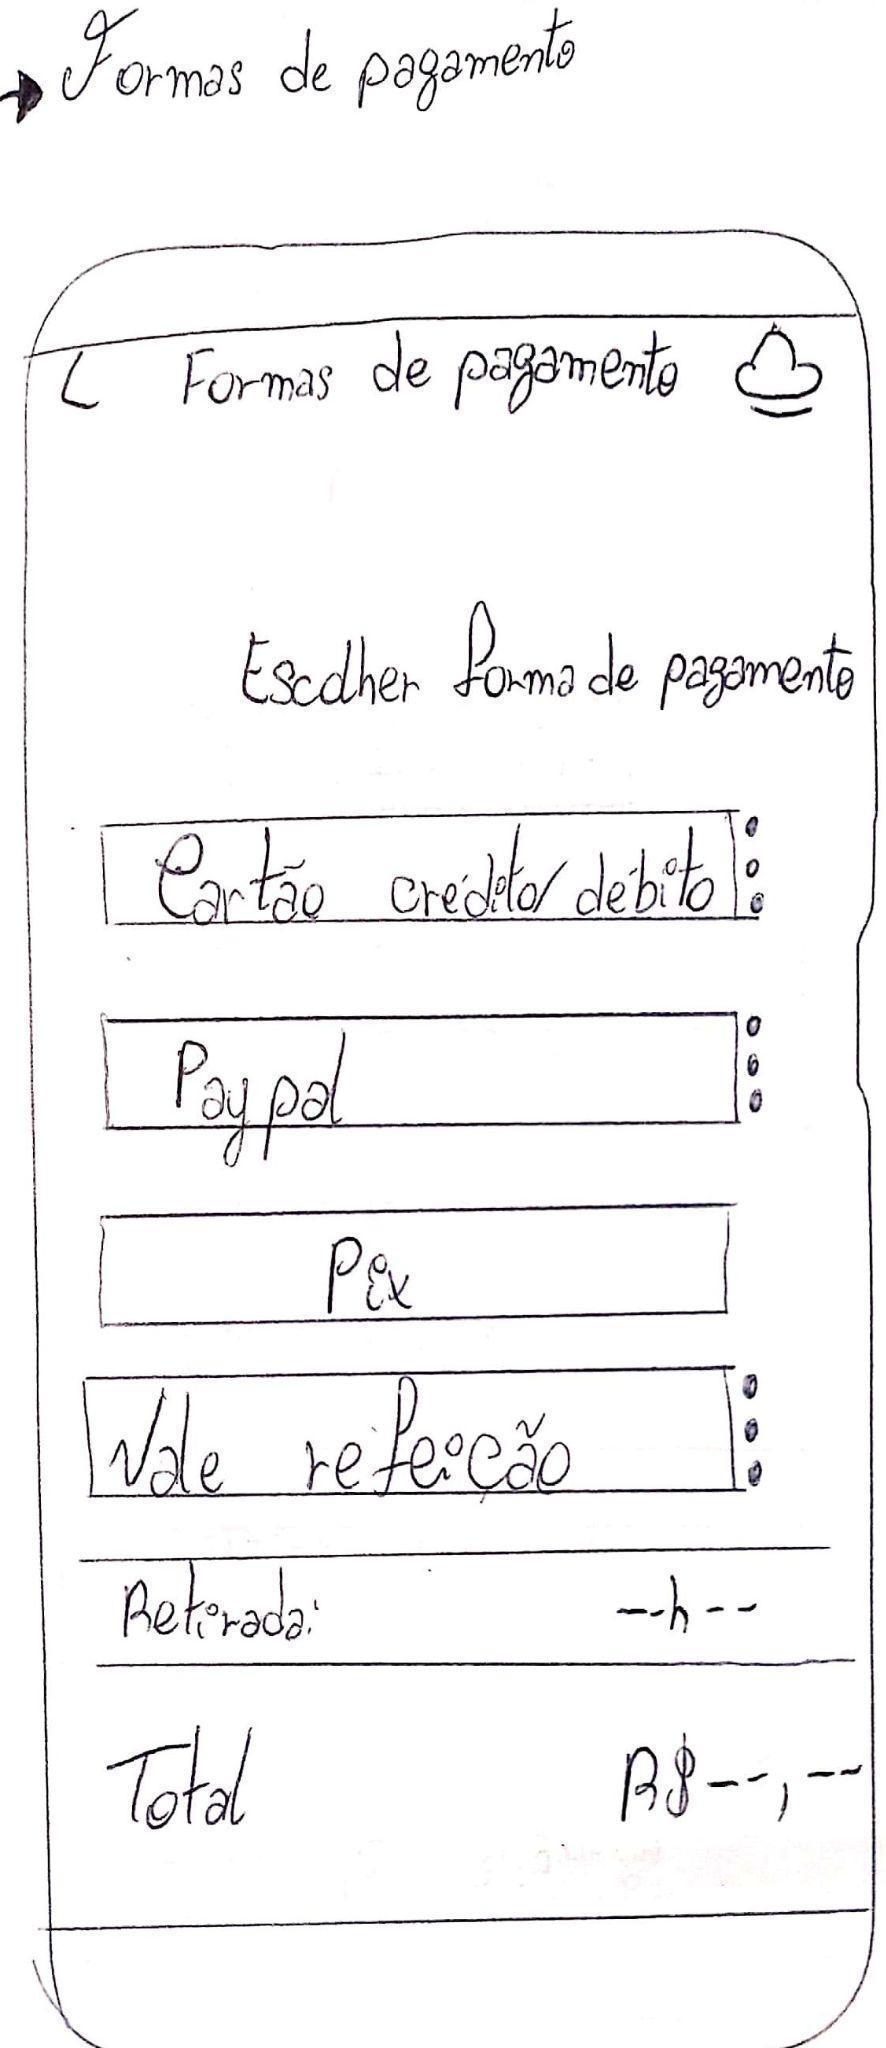 Formas de pagamento
Formas de pagamento
Escolher forma de pagamento
Cartão crédito/débito
Paypal
Pix
Vale refeição
Retirada: --h--
Total R$--,--